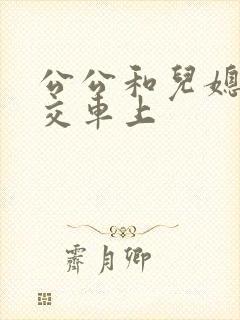 公公和兒媳
交車上
霽月卿